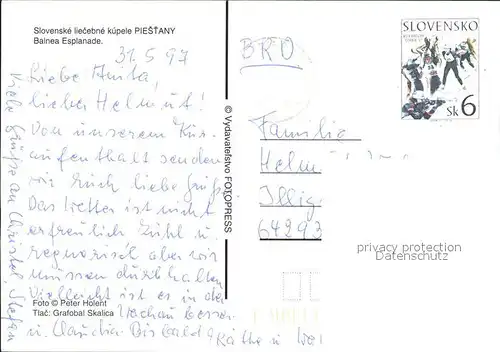 Slovenské liečebné kúpele PIEŠŤANY
Balnea Esplanade.
31.5 97
Liebe Anita,
lieber Helmut!
Von unserem Kur-
aufenthalt senden
wir Euch liebe Grüße
Das Wetter ist nicht
erfreulich Kühl u.
regnerisch aber wir
müssen durchhalten
Vielleicht ist es in der
Wachau besser
u. Claudia Bis bald
Käthe u
Viele Grüße an Christel, Stefan
Foto © Peter Holent
Tlač: Grafobal Skalica
© Vydavateľstvo FOTOPRESS
BRD
SLOVENSKO
Sk 6
Familie
Helm
Illig
64293
privacy protection
Datenschutz